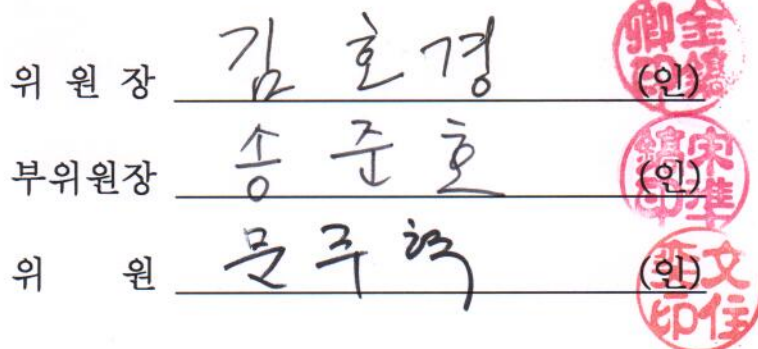 위 원 장 김 호 경 (인)
부위원장 송 준 호 (인)
위 원 문 주 혁 (인)